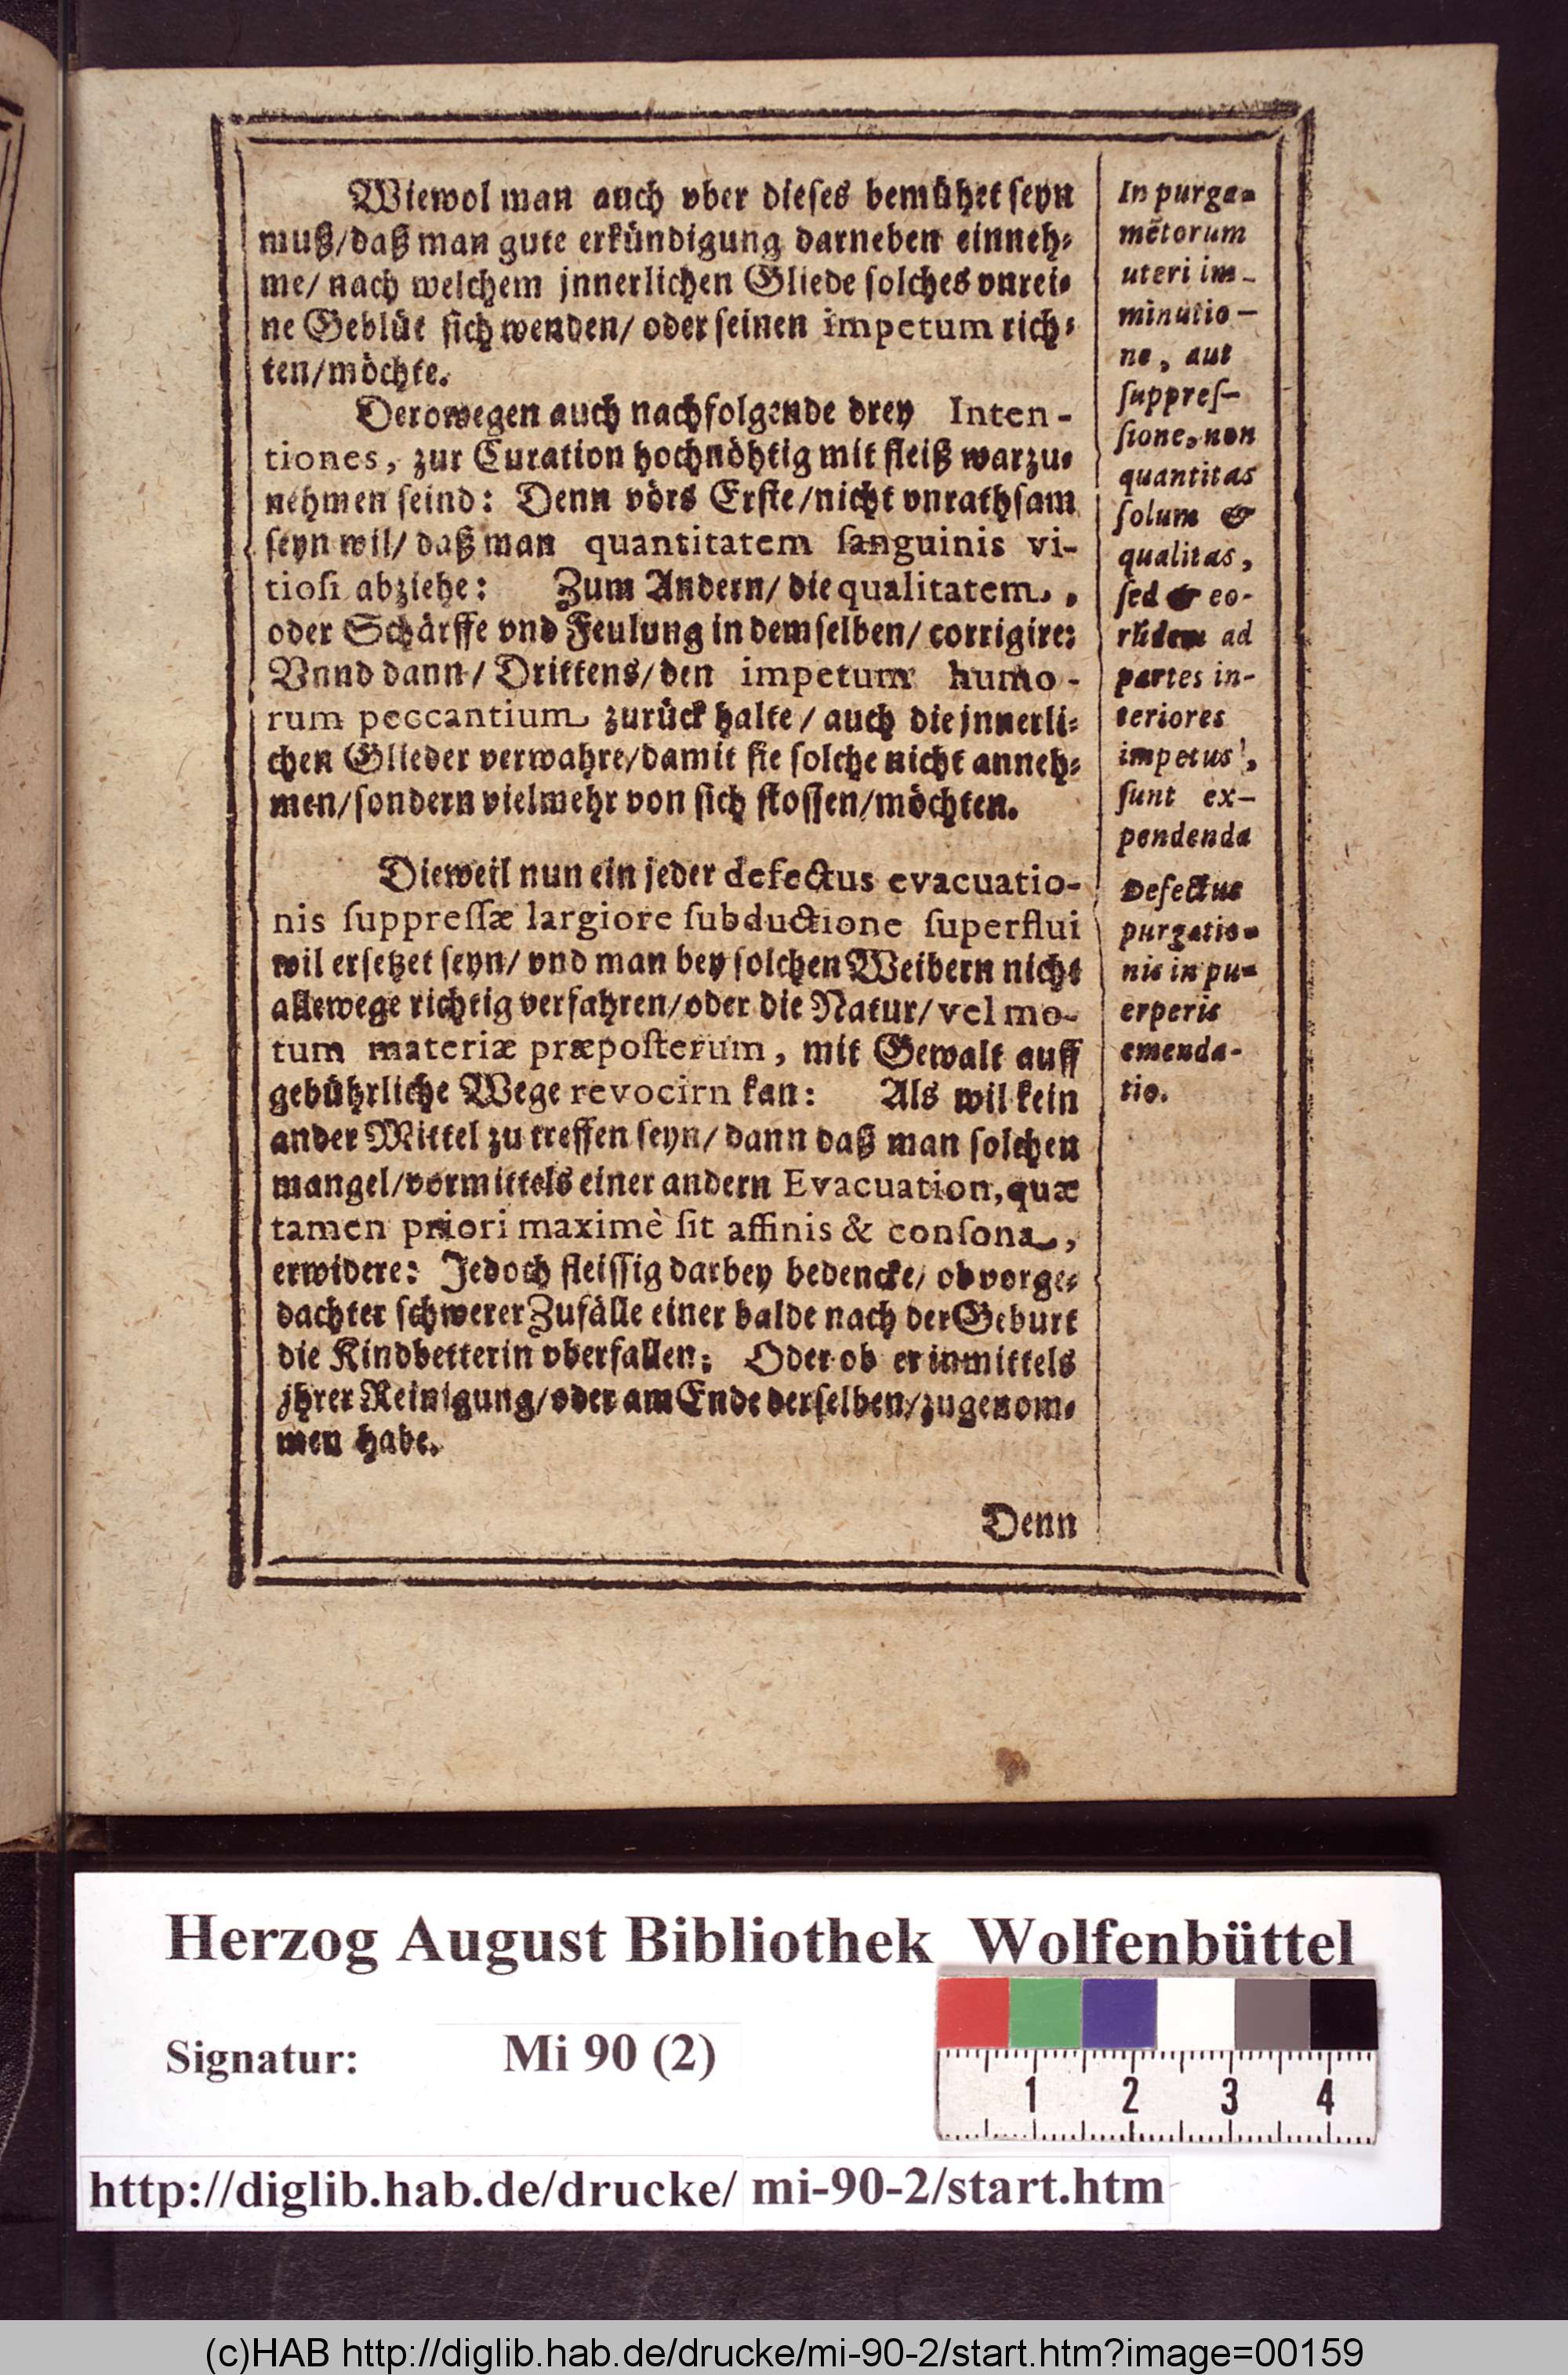 Wiewol man auch vber dieses bemühet seyn
muß/daß man gute erkündigung darneben einneh⸗
me/ nach welchem jnnerlichen Gliede solches vnrei⸗
ne Geblüt sich wenden/ oder seinen impetum rich⸗
ten/möchte.
Derowegen auch nachfolgende drey Inten-
tiones, zur Curation hochnöhtig mit fleiß warzu⸗
nehmen seind: Denn vörs Erste/nicht vnrathsam
seyn wil/ daß man quantitatem ſanguinis vi-
tioſi abziehe: Zum Andern/ die qualitatem,
oder Schärffe vnd Feulung in demselben/ corrigire:
Vnnd dann/ Drittens/den impetum humo-
rum peccantium zurück halte/ auch die jnnerli⸗
chen Glieder verwahre/damit sie solche nicht anneh⸗
men/sondern vielmehr von sich stossen/möchten.
Dieweil nun ein jeder defectus evacuatio-
nis ſuppreſſæ largiore ſubductione ſuperflui
wil ersetzet seyn/ vnd man bey solchen Weibern nicht
allewege richtig verfahren/oder die Natur/ vel mo-
tum materiæ præpoſterum, mit Gewalt auff
gebührliche Wege revocirn kan: Als wil kein
ander Mittel zu treffen seyn/ dann daß man solchen
mangel/vormittels einer andern Evacuation, quæ
tamen priori maximè ſit affinis & conſona,
erwidere: Jedoch fleissig darbey bedencke/ ob vorge⸗
dachter schwerer Zufälle einer balde nach der Geburt
die Kindbetterin vberfallen: Oder ob er inmittels
jhrer Reinigung/oder am Ende derselben/zugenom⸗
men habe.
Denn
In purga-
mētorum
uteri im-
minutio-
ne, aut
ſuppreſ-
ſione, non
quantitas
ſolum &
qualitas,
ſed & eo-
rūdem ad
partes in-
teriores
impetus,
ſunt ex-
pendenda
Defectus
purgatio-
nis in pu-
erperis
emenda-
tio.
Herzog August Bibliothek Wolfenbüttel
Signatur: Mi 90 (2)
1 2 3 4
http://diglib.hab.de/drucke/ mi-90-2/start.htm
(c)HAB http://diglib.hab.de/drucke/mi-90-2/start.htm?image=00159